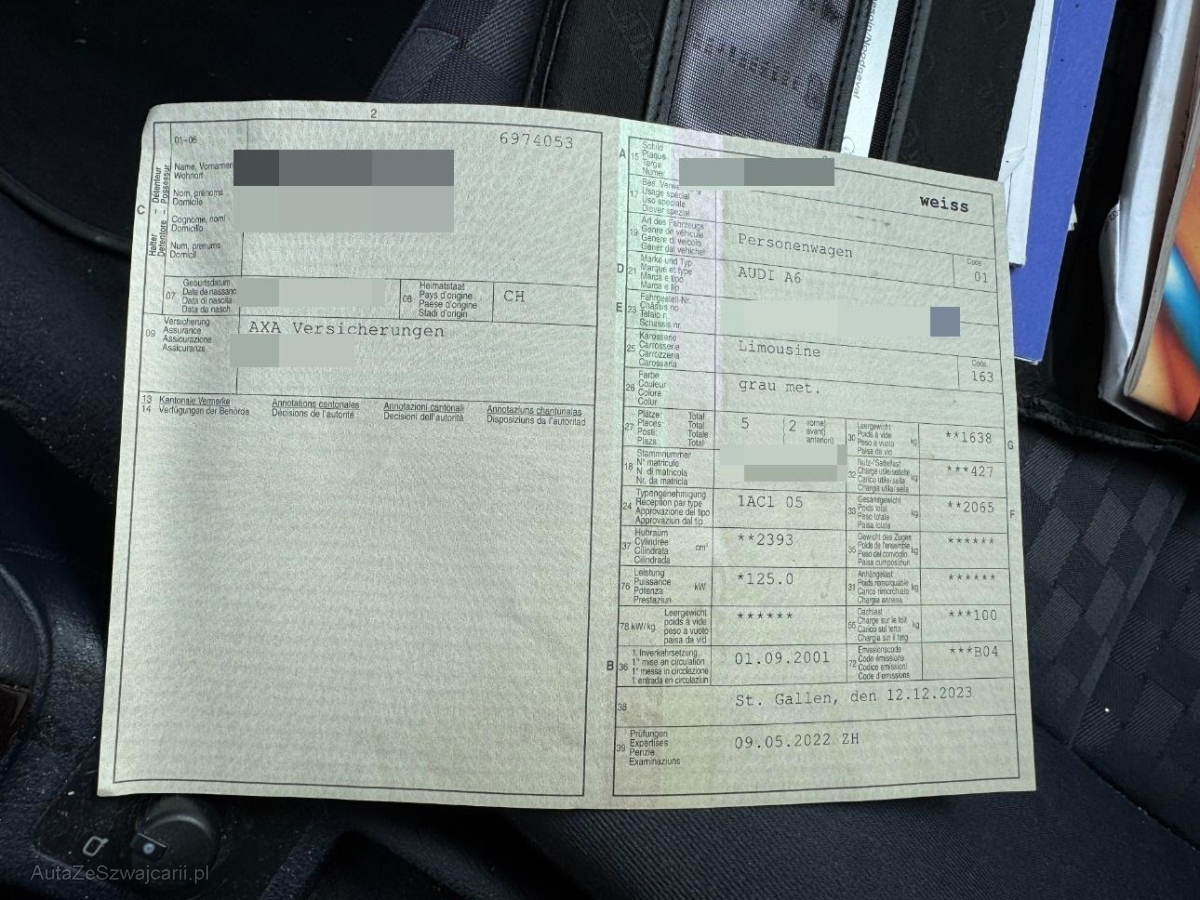 2
01-06
6974053
C
Halter - Détenteur
Detentore - Possessur
Name, Vornamen
Wohnort
Nom, prénoms
Domicile
Cognome, nomi
Domicilio
Num, prenums
Domicil
07
Geburtsdatum
Date de naissance
Data di nascita
Data da nasch.
08
Heimatstaat
Pays d'origine
Paese d'origine
Stadi d'origin
CH
09
Versicherung
Assurance
Assicurazione
Assicuranza
AXA Versicherungen
13
14
Kantonale Vermerke
Verfügungen der Behörde
Annotations cantonales
Décisions de l'autorité
Annotazioni cantonali
Decisioni dell'autorità
Annotaziuns chantunalas
Disposiziuns da l'autoritad
A
15
Schild
Plaque
Targa
Numer
weiss
17
Bes. Verwe
Usage spécial
Uso speciale
Diever spezial
19
Art des Fahrzeugs
Genre de véhicule
Genere di veicolo
Gener dal vehichel
Personenwagen
Code
01
D
21
Marke und Typ
Marque et type
Marca e tipo
Marca e tip
AUDI A6
E
23
Fahrgestell-Nr.
Châssis no
Telaio n.
Schassis nr.
25
Karosserie
Carrosserie
Carrozzeria
Carossaria
Limousine
Code
163
26
Farbe
Couleur
Colore
Colur
grau met.
27
Plätze: Total
Places: Total
Posti: Totale
Plazs: Total
5
2
vorne)
avant)
anteriori)
30
Leergewicht
Poids à vide
Peso a vuoto
Paisa da vid
kg
**1638
G
18
Stammnummer
N° matricule
N. di matricola
Nr. da matricla
32
Nutz-/Sattellast
Charge utile/sellette
Carico utile/sella
Chargia utila/sella
kg
***427
24
Typengenehmigung
Réception par type
Approvazione del tipo
Approvaziun dal tip
1AC1 05
33
Gesamtgewicht
Poids total
Peso totale
Paisa totala
kg
**2065
F
37
Hubraum
Cylindrée
Cilindrata
Cilindrada
cm³
**2393
35
Gewicht des Zuges
Poids de l'ensemble
Peso del convoglio
Paisa cumposiziun
kg
******
76
Leistung
Puissance
Potenza
Prestaziun
kW
*125.0
31
Anhängelast
Poids remorquable
Carico rimorchiato
Chargia annexa
kg
******
78 kW/kg
Leergewicht
poids à vide
peso a vuoto
paisa da vid
******
55
Dachlast
Charge sur le toit
Carico sul tetto
Chargia sin il tetg
kg
***100
B
36
1. Inverkehrsetzung
1re mise en circulation
1a messa in circolazione
1 entrada en circulaziun
01.09.2001
72
Emissionscode
Code émissions
Codice emissioni
Code d'emissiuns
***B04
38
St. Gallen, den 12.12.2023
39
Prüfungen
Expertises
Perizie
Examinaziuns
09.05.2022 ZH
AutaZeSzwajcarii.pl